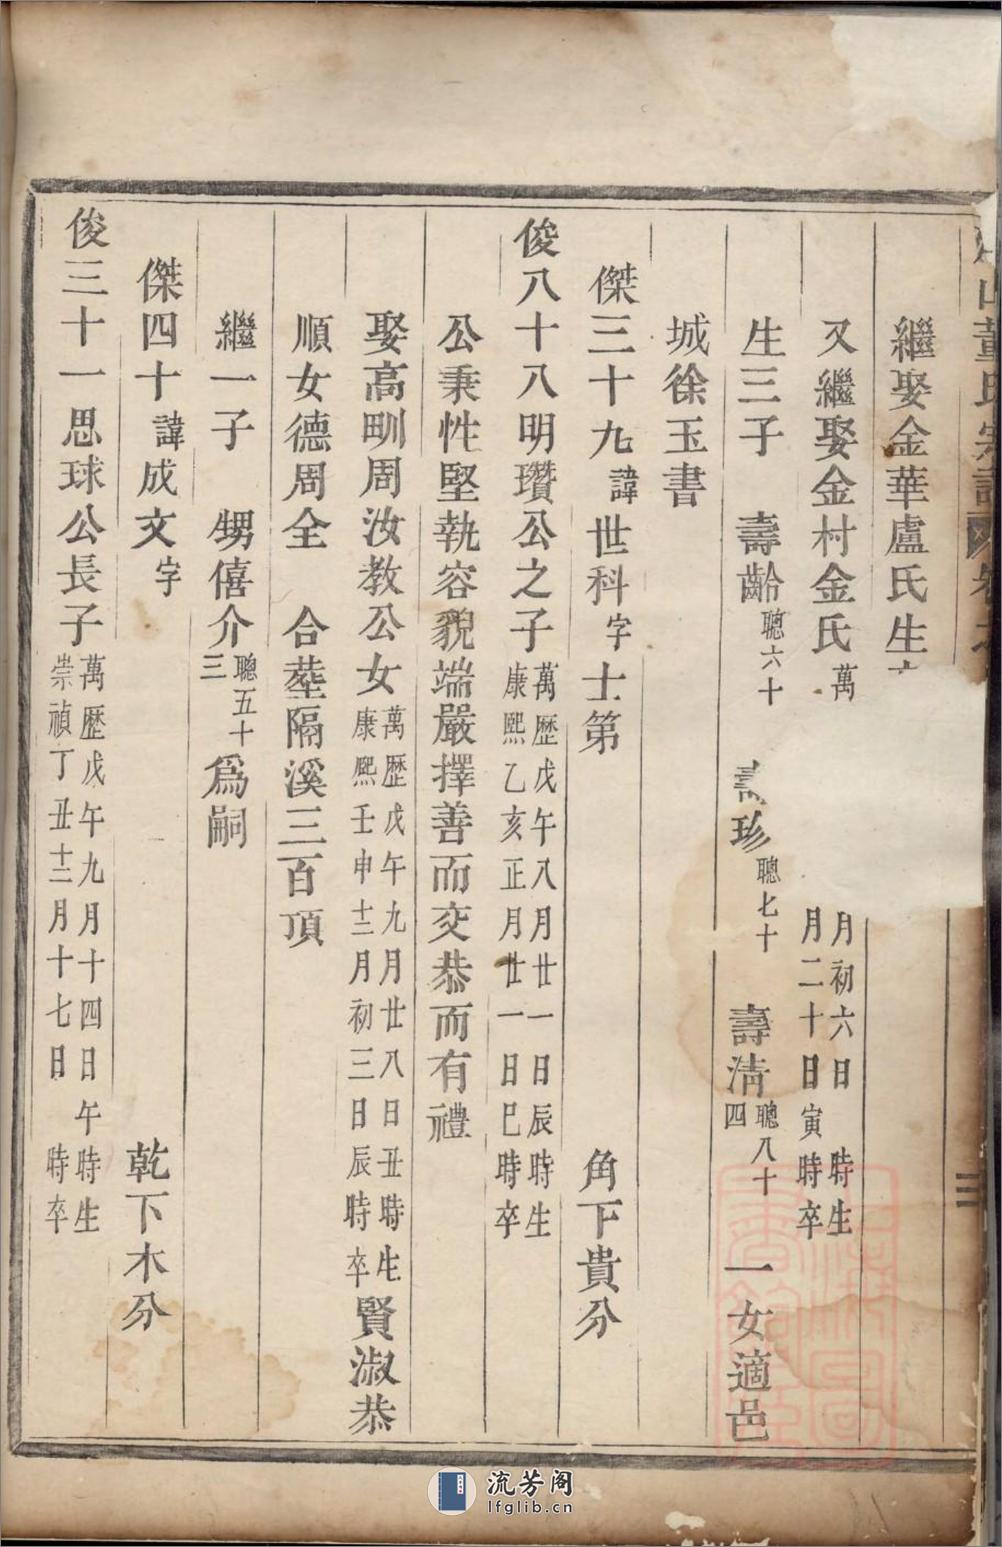 山董氏宗譜 卷之
繼娶金華盧氏生
又繼娶金村金氏萬 月初六日 時生 月二十日寅時卒
生三子 壽齡聰六十 壽珍聰七十 壽清聰八十四 一女適邑
城徐玉書
傑三十九諱世科字士第 角下貴分
俊八十八明瓚公之子萬歷戊午八月廿一日辰時生康熙乙亥正月廿一日巳時卒
公秉性堅執容貌端嚴擇善而交恭而有禮
娶高畈周汝教公女萬歷戊午九月廿八日丑時生康熙壬申十二月初三日辰時卒賢淑恭
順女德周全 合塟隔溪三百項
繼一子 甥僖介聰五十三為嗣
傑四十諱成文字 乾下木分
俊三十一思球公長子萬歷戊午九月十四日午時生崇禎丁丑十二月十七日 時卒
流芳阁
lfglib.cn